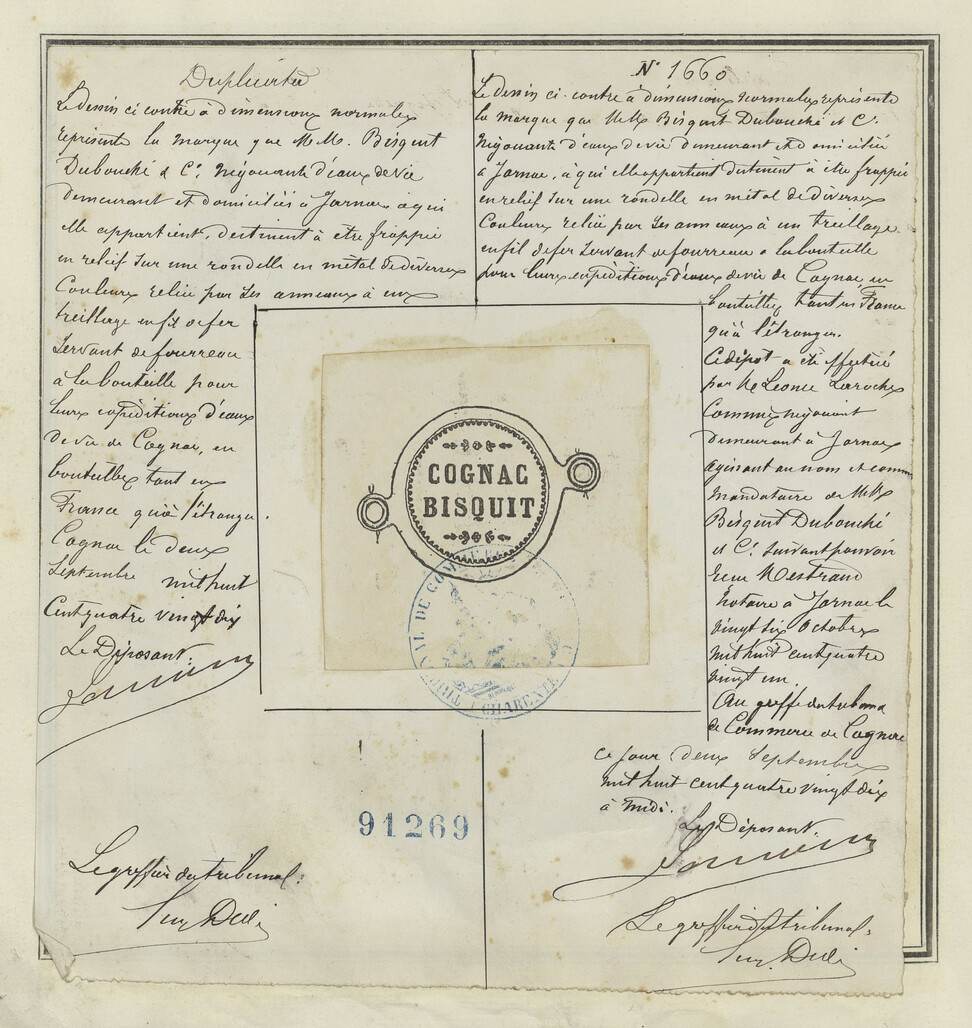 Duplicata
Le Dessin ci contre à dimensions normales
représente la marque que M.M. Bisquit
Dubouché & Cie. Négociants d'eaux de vie
demeurant et domiciliés à Jarnac à qui
elle appartient, destinent à être frappée
en relief sur une rondelle en métal de diverses
Couleurs reliée par ses anneaux à un
treillage en fil de fer
servant de fourreau
à la bouteille pour
leurs expéditions d'eaux
de vie de Cognac, en
bouteilles tant en
France qu'à l'étranger.
Cognac le deux
Septembre mil huit
Cent quatre vingt dix
Le Déposant:
Le greffier du tribunal:
N° 1660
Le Dessin ci-contre à dimensions normales représente
la marque que M.M. Bisquit Dubouché et Cie.
Négociants d'eaux de vie demeurant et domiciliés
à Jarnac, à qui elle appartient destinent à être frappée
en relief sur une rondelle en métal de diverses
Couleurs reliée par ses anneaux à un treillage
en fil de fer servant de fourreau à la bouteille
pour leurs expéditions d'eaux de vie de Cognac, en
bouteilles tant en France
qu'à l'étranger.
Ce dépôt a été effectué
par M. Léonce Laroche
Commis négociant
demeurant à Jarnac
agissant au nom et comme
mandataire de M.M.
Bisquit Dubouché
et Cie. suivant pouvoir
reçu Mestraud
Notaire à Jarnac le
vingt six Octobre
mil huit cent quatre
vingt un.
Au greffe du tribunal
de Commerce de Cognac
ce jour deux Septembre
mil huit cent quatre vingt dix
à Midi.
Le Déposant.
Le greffier du tribunal:
COGNAC
BISQUIT
CHARENTE
91269